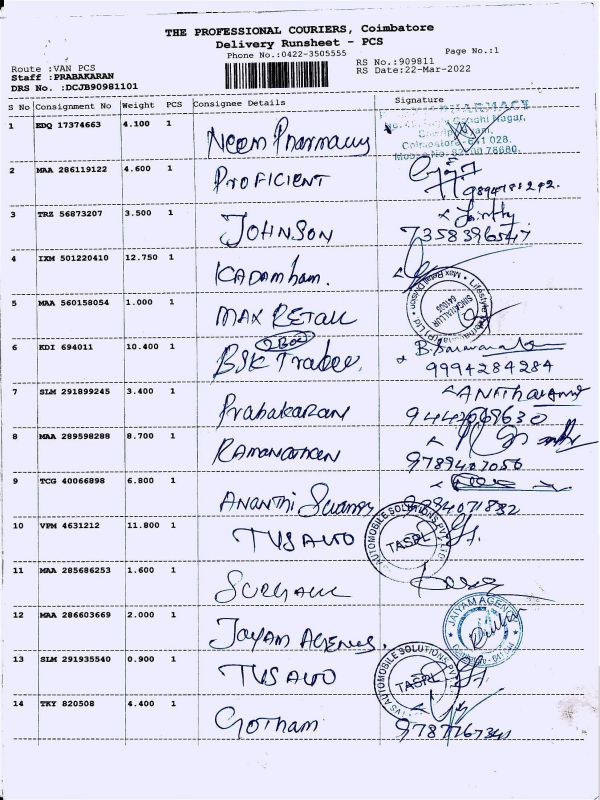 THE PROFESSIONAL COURIERS, Coimbatore
Delivery Runsheet - PCS
Phone No.:0422-3505555
Page No.:1
Route :VAN PCS
RS No.:909811
Staff :PRABAKARAN
RS Date:22-Mar-2022
DRS No. :DCJB90981101
S No Consignment No Weight PCS Consignee Details Signature
1 EDQ 17374663 4.100 1 Neem Pharmacy
PHARMACY
Gandhi Nagar,
Coimbatore-641 028.
2 MAA 286119122 4.600 1 PROFICIENT
3 TRZ 56873207 3.500 1 JOHNSON 7358396547
4 IXM 501220410 12.750 1 KADAMham.
5 MAA 560158054 1.000 1 MAX RETAIL
Max Retail Division
Lifestyle
SINGANALLUR
641005
6 KDI 694011 10.400 1 BSK
9994284284
7 SLM 291899245 3.400 1 Prabakaran
8 MAA 289598288 8.700 1 RAMANATHAN
9789407056
9 TCG 40066898 6.800 1 ANANTHI
10 VPM 4631212 11.800 1 TVS AUTO
AUTOMOBILE SOLUTIONS PVT LTD
TASPL
11 MAA 285686253 1.600 1
12 MAA 286603669 2.000 1 JAYAM AGENCIES.
JAIYAM AGENCIES
13 SLM 291935540 0.900 1 TVS AUTO
TVS AUTOMOBILE SOLUTIONS PVT LTD
TASPL
14 TKY 820508 4.400 1 GOTHAM